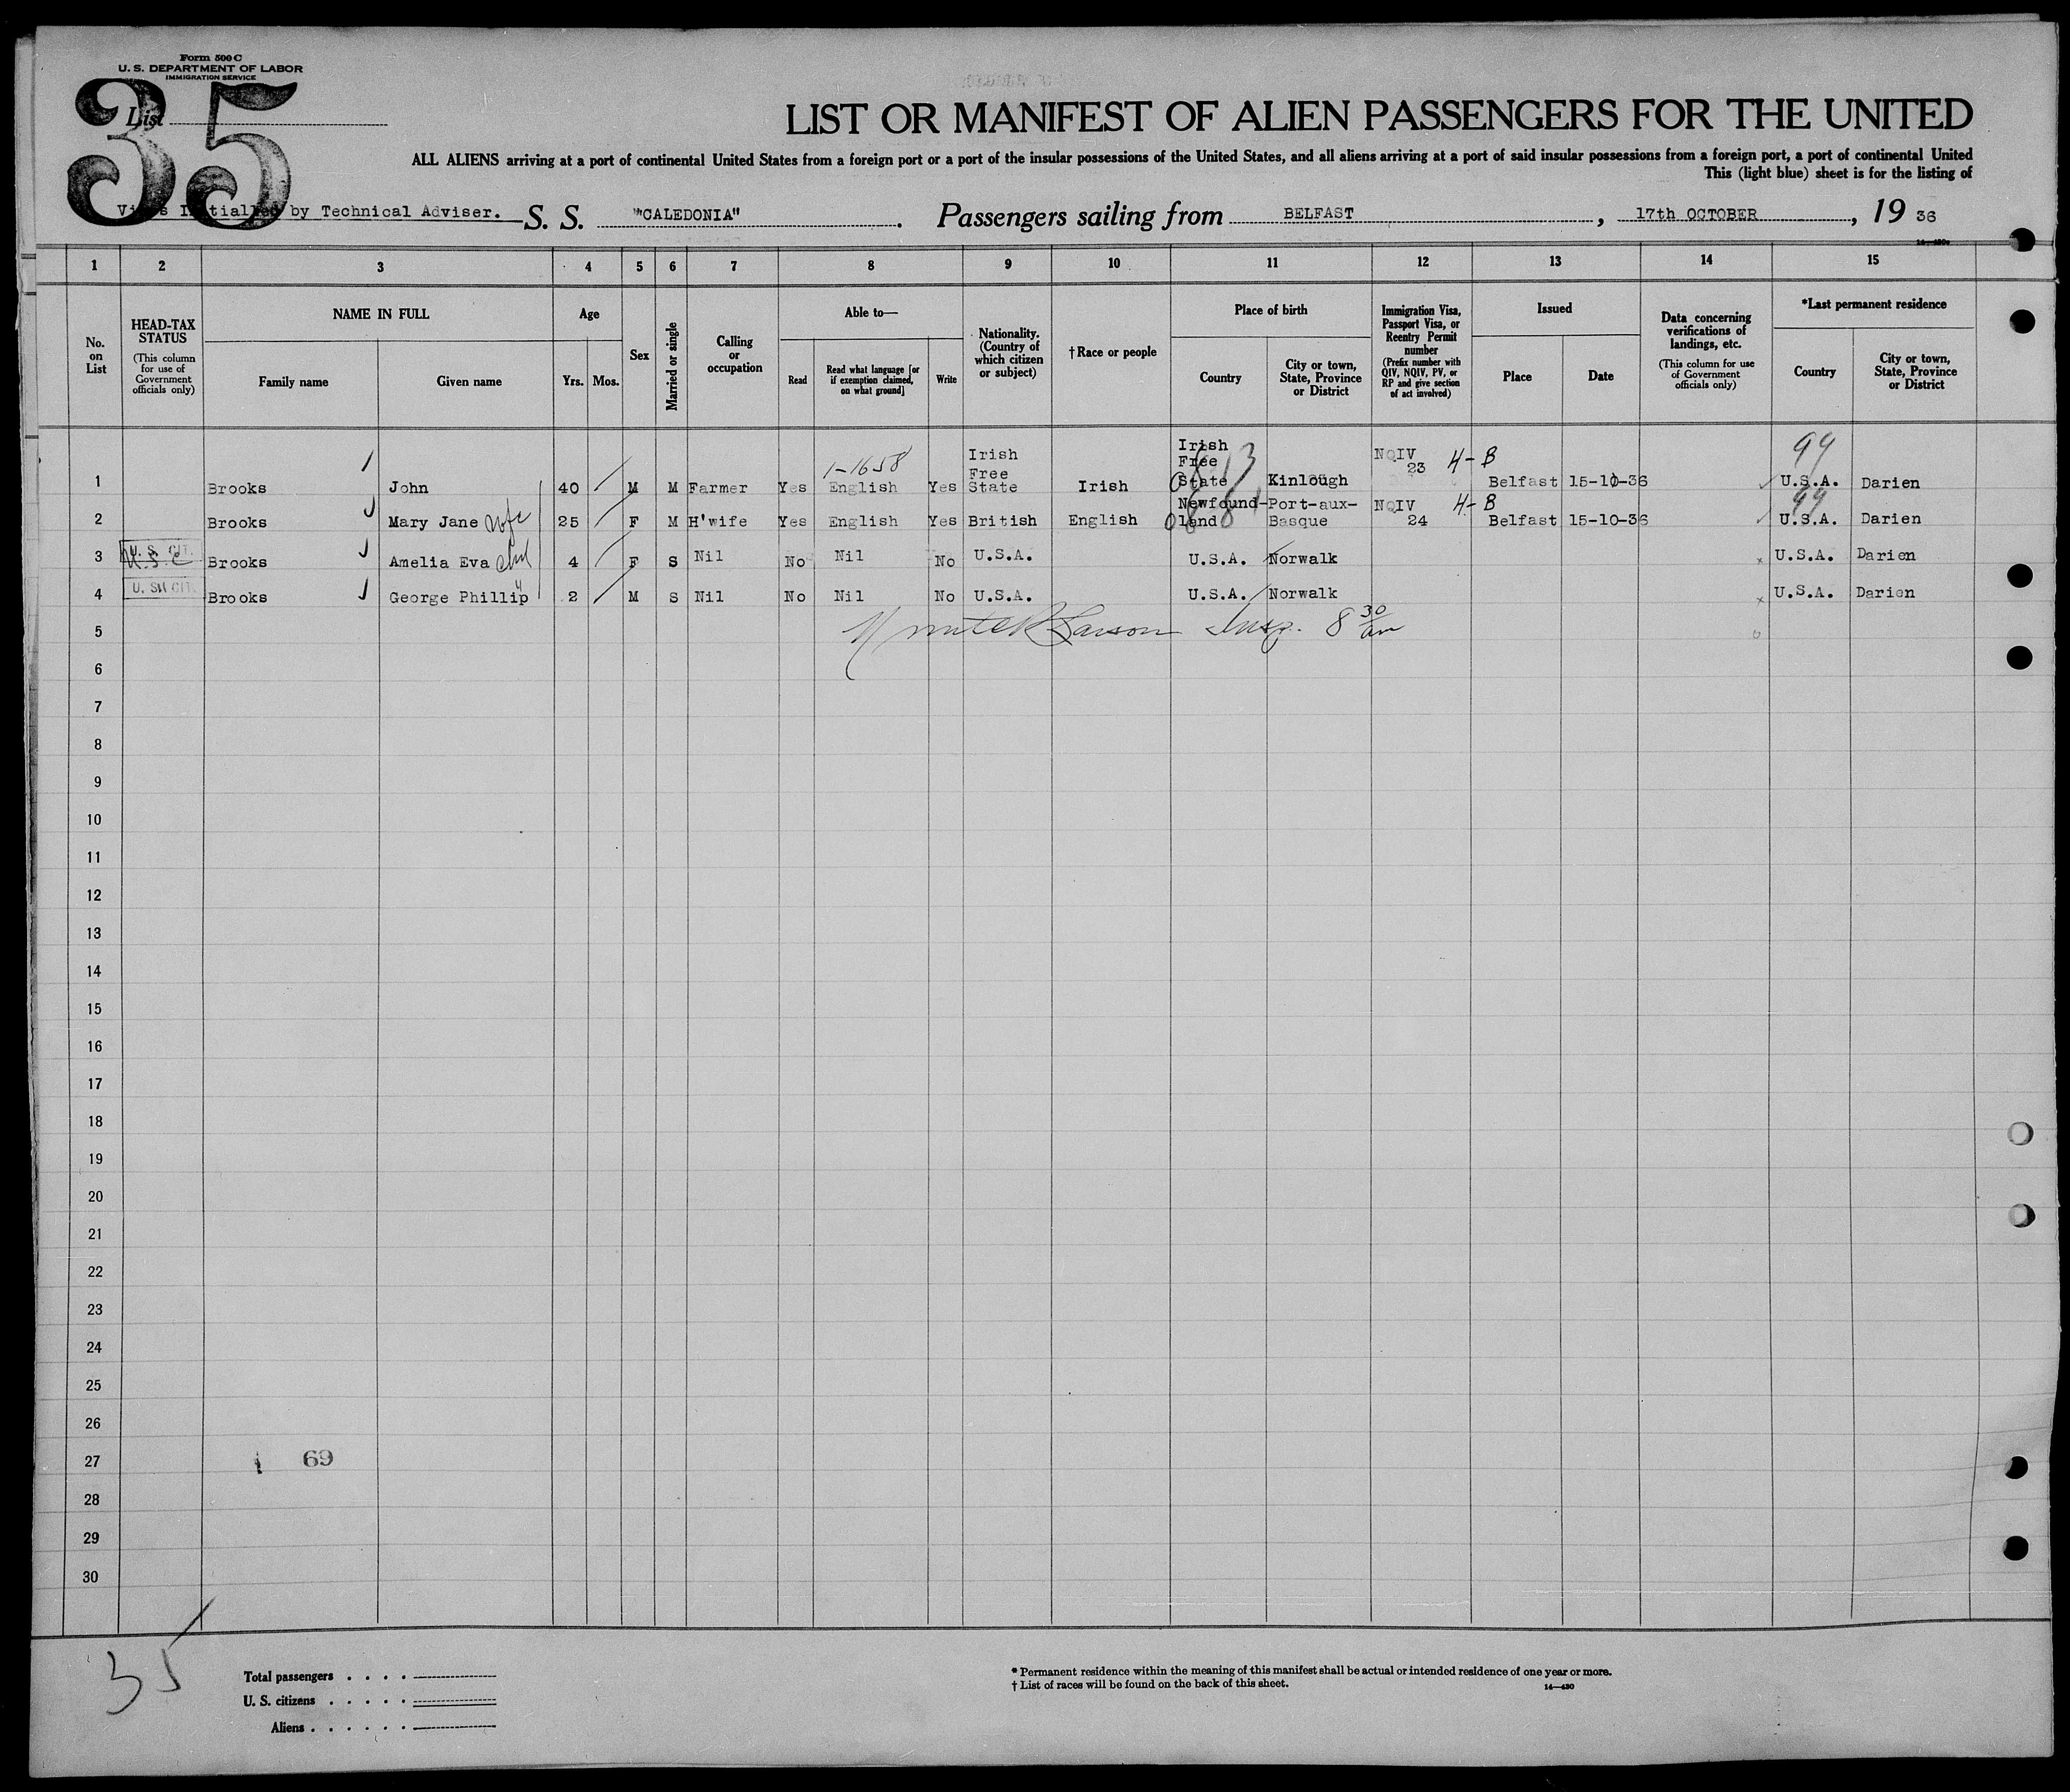 Form 500 C
U. S. DEPARTMENT OF LABOR
IMMIGRATION SERVICE
35
List
LIST OR MANIFEST OF ALIEN PASSENGERS FOR THE UNITED
ALL ALIENS arriving at a port of continental United States from a foreign port or a port of the insular possessions of the United States, and all aliens arriving at a port of said insular possessions from a foreign port, a port of continental United
This (light blue) sheet is for the listing of
Visas Initialled by Technical Adviser. S. S. "CALEDONIA". Passengers sailing from BELFAST, 17th OCTOBER, 19 36
1 2 3 4 5 6 7 8 9 10 11 12 13 14 15
No. on List
HEAD-TAX STATUS
(This column for use of Government officials only)
NAME IN FULL
Family name
Given name
Age
Yrs. Mos.
Sex
Married or single
Calling or occupation
Able to—
Read
Read what language [or if exemption claimed, on what ground]
Write
Nationality. (Country of which citizen or subject)
†Race or people
Place of birth
Country
City or town, State, Province or District
Immigration Visa, Passport Visa, or Reentry Permit number
(Prefix number with QIV, NQIV, PV, or RP and give section of act involved)
Issued
Place
Date
Data concerning verifications of landings, etc.
(This column for use of Government officials only)
*Last permanent residence
Country
City or town, State, Province or District
1-1658
99
1 Brooks John 40 M M Farmer Yes English Yes Irish Free State Irish Irish Free State Kinlough NQIV 23 4-B Belfast 15-10-36 U.S.A. Darien
99
2 Brooks Mary Jane wife 25 F M H'wife Yes English Yes British English Newfound-land Port-aux-Basque NQIV 24 4-B Belfast 15-10-36 U.S.A. Darien
3 U. S. CIT. U.S.C Brooks Amelia Eva chd 4 F S Nil No Nil No U.S.A. U.S.A. Norwalk U.S.A. Darien
4 U. S. CIT. Brooks George Phillip 2 M S Nil No Nil No U.S.A. U.S.A. Norwalk U.S.A. Darien
5 Larson Insp. 8 30 am
6
7
8
9
10
11
12
13
14
15
16
17
18
19
20
21
22
23
24
25
26
27 69
28
29
30
35
Total passengers
U. S. citizens
Aliens
* Permanent residence within the meaning of this manifest shall be actual or intended residence of one year or more.
† List of races will be found on the back of this sheet.
14—430